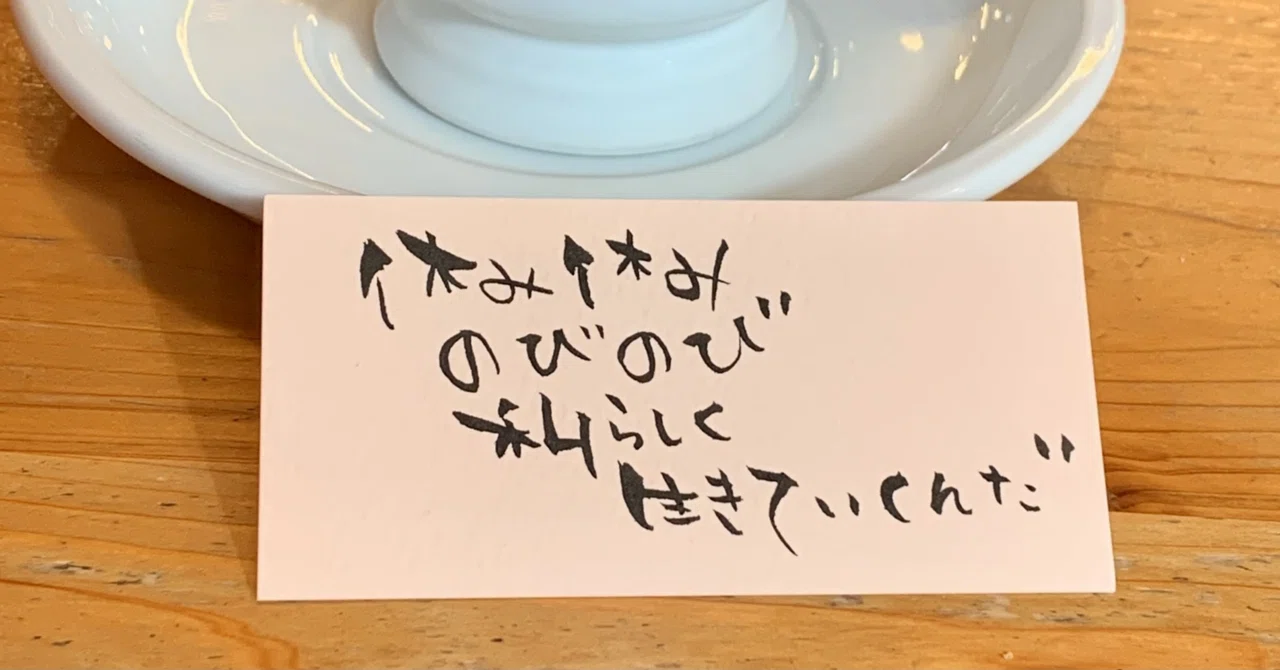 休み休み
のびのび
私らしく
生きていくんだ